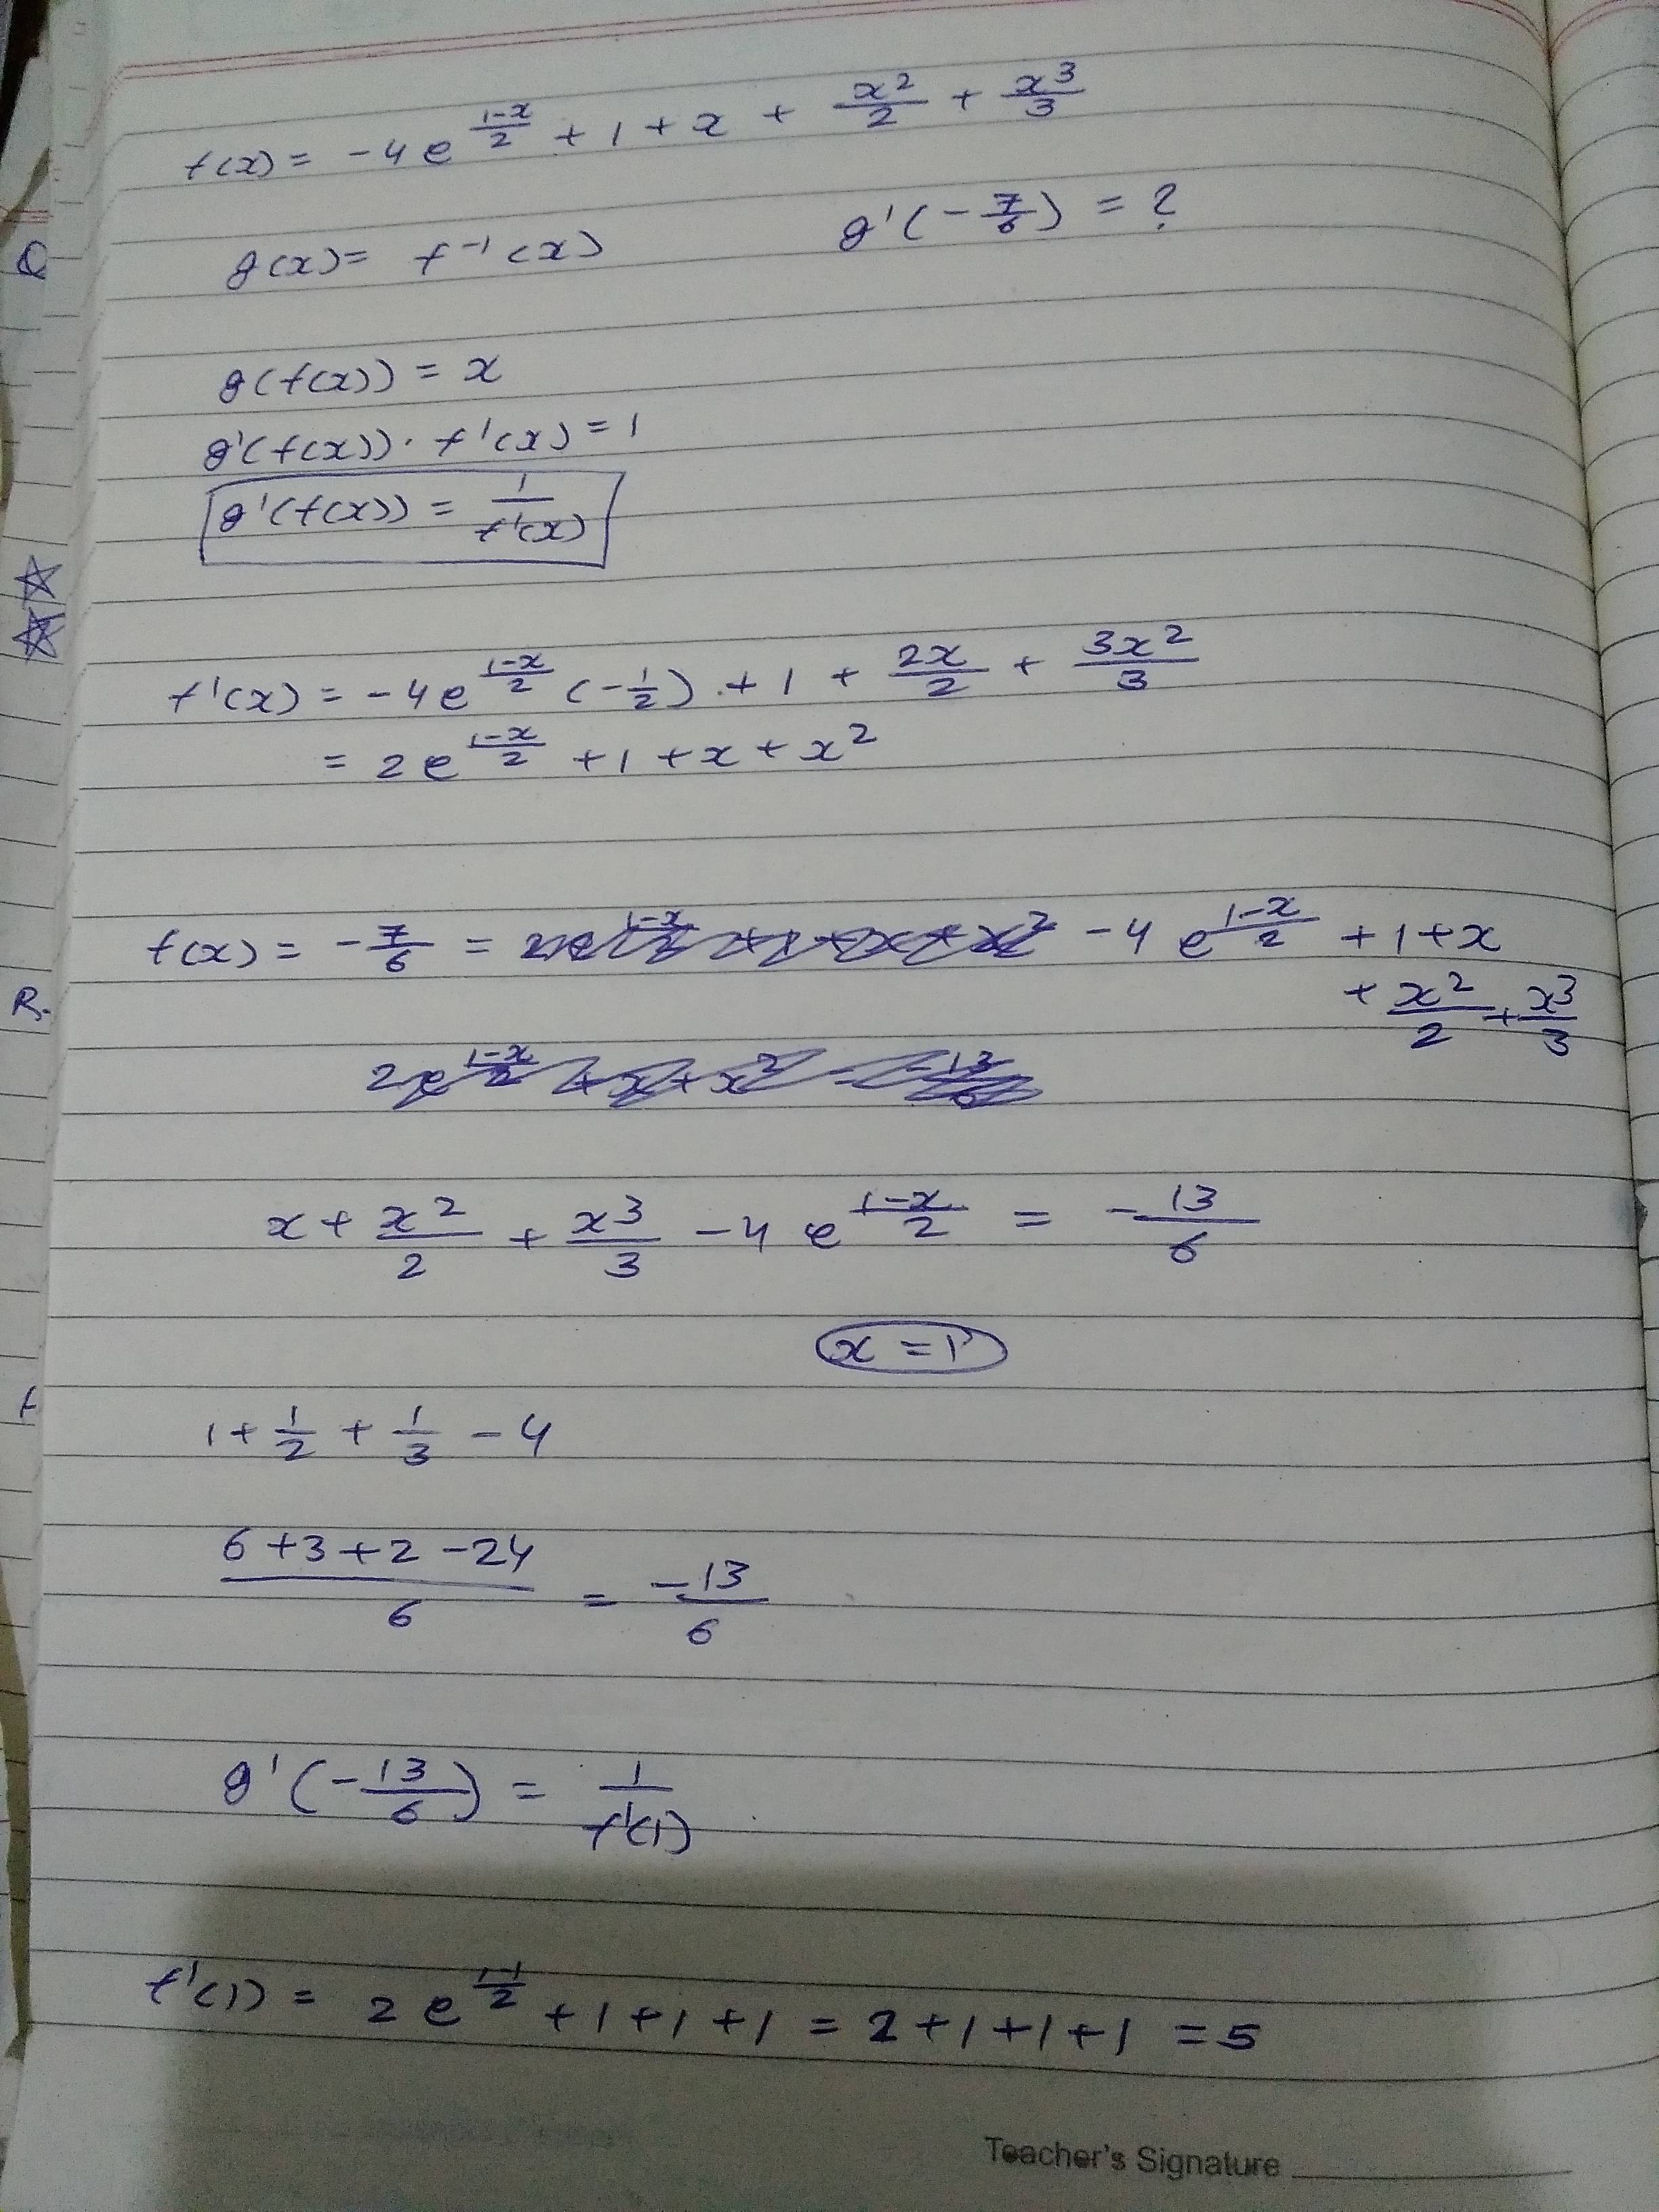 f(x) = -4e^((1-x)/2) + 1 + x + x²/2 + x³/3
Q g(x) = f⁻¹(x) g'(-7/6) = ?
g(f(x)) = x
g'(f(x)) · f'(x) = 1
g'(f(x)) = 1/f'(x)
f'(x) = -4e^((1-x)/2) (-1/2) + 1 + 2x/2 + 3x²/3
= 2e^((1-x)/2) + 1 + x + x²
f(x) = -7/6 = 2e^((1-x)/2) + 1 + x + x² -4e^((1-x)/2) + 1 + x
R. + x²/2 + x³/3
2e^((1-x)/2) + x + x² = -13/6
x + x²/2 + x³/3 - 4e^((1-x)/2) = -13/6
x = 1
1 + 1/2 + 1/3 - 4
(6+3+2-24)/6 = -13/6
g'(-13/6) = 1/f'(1)
f'(1) = 2e^((1-1)/2) + 1 + 1 + 1 = 2+1+1+1 = 5
Teacher's Signature